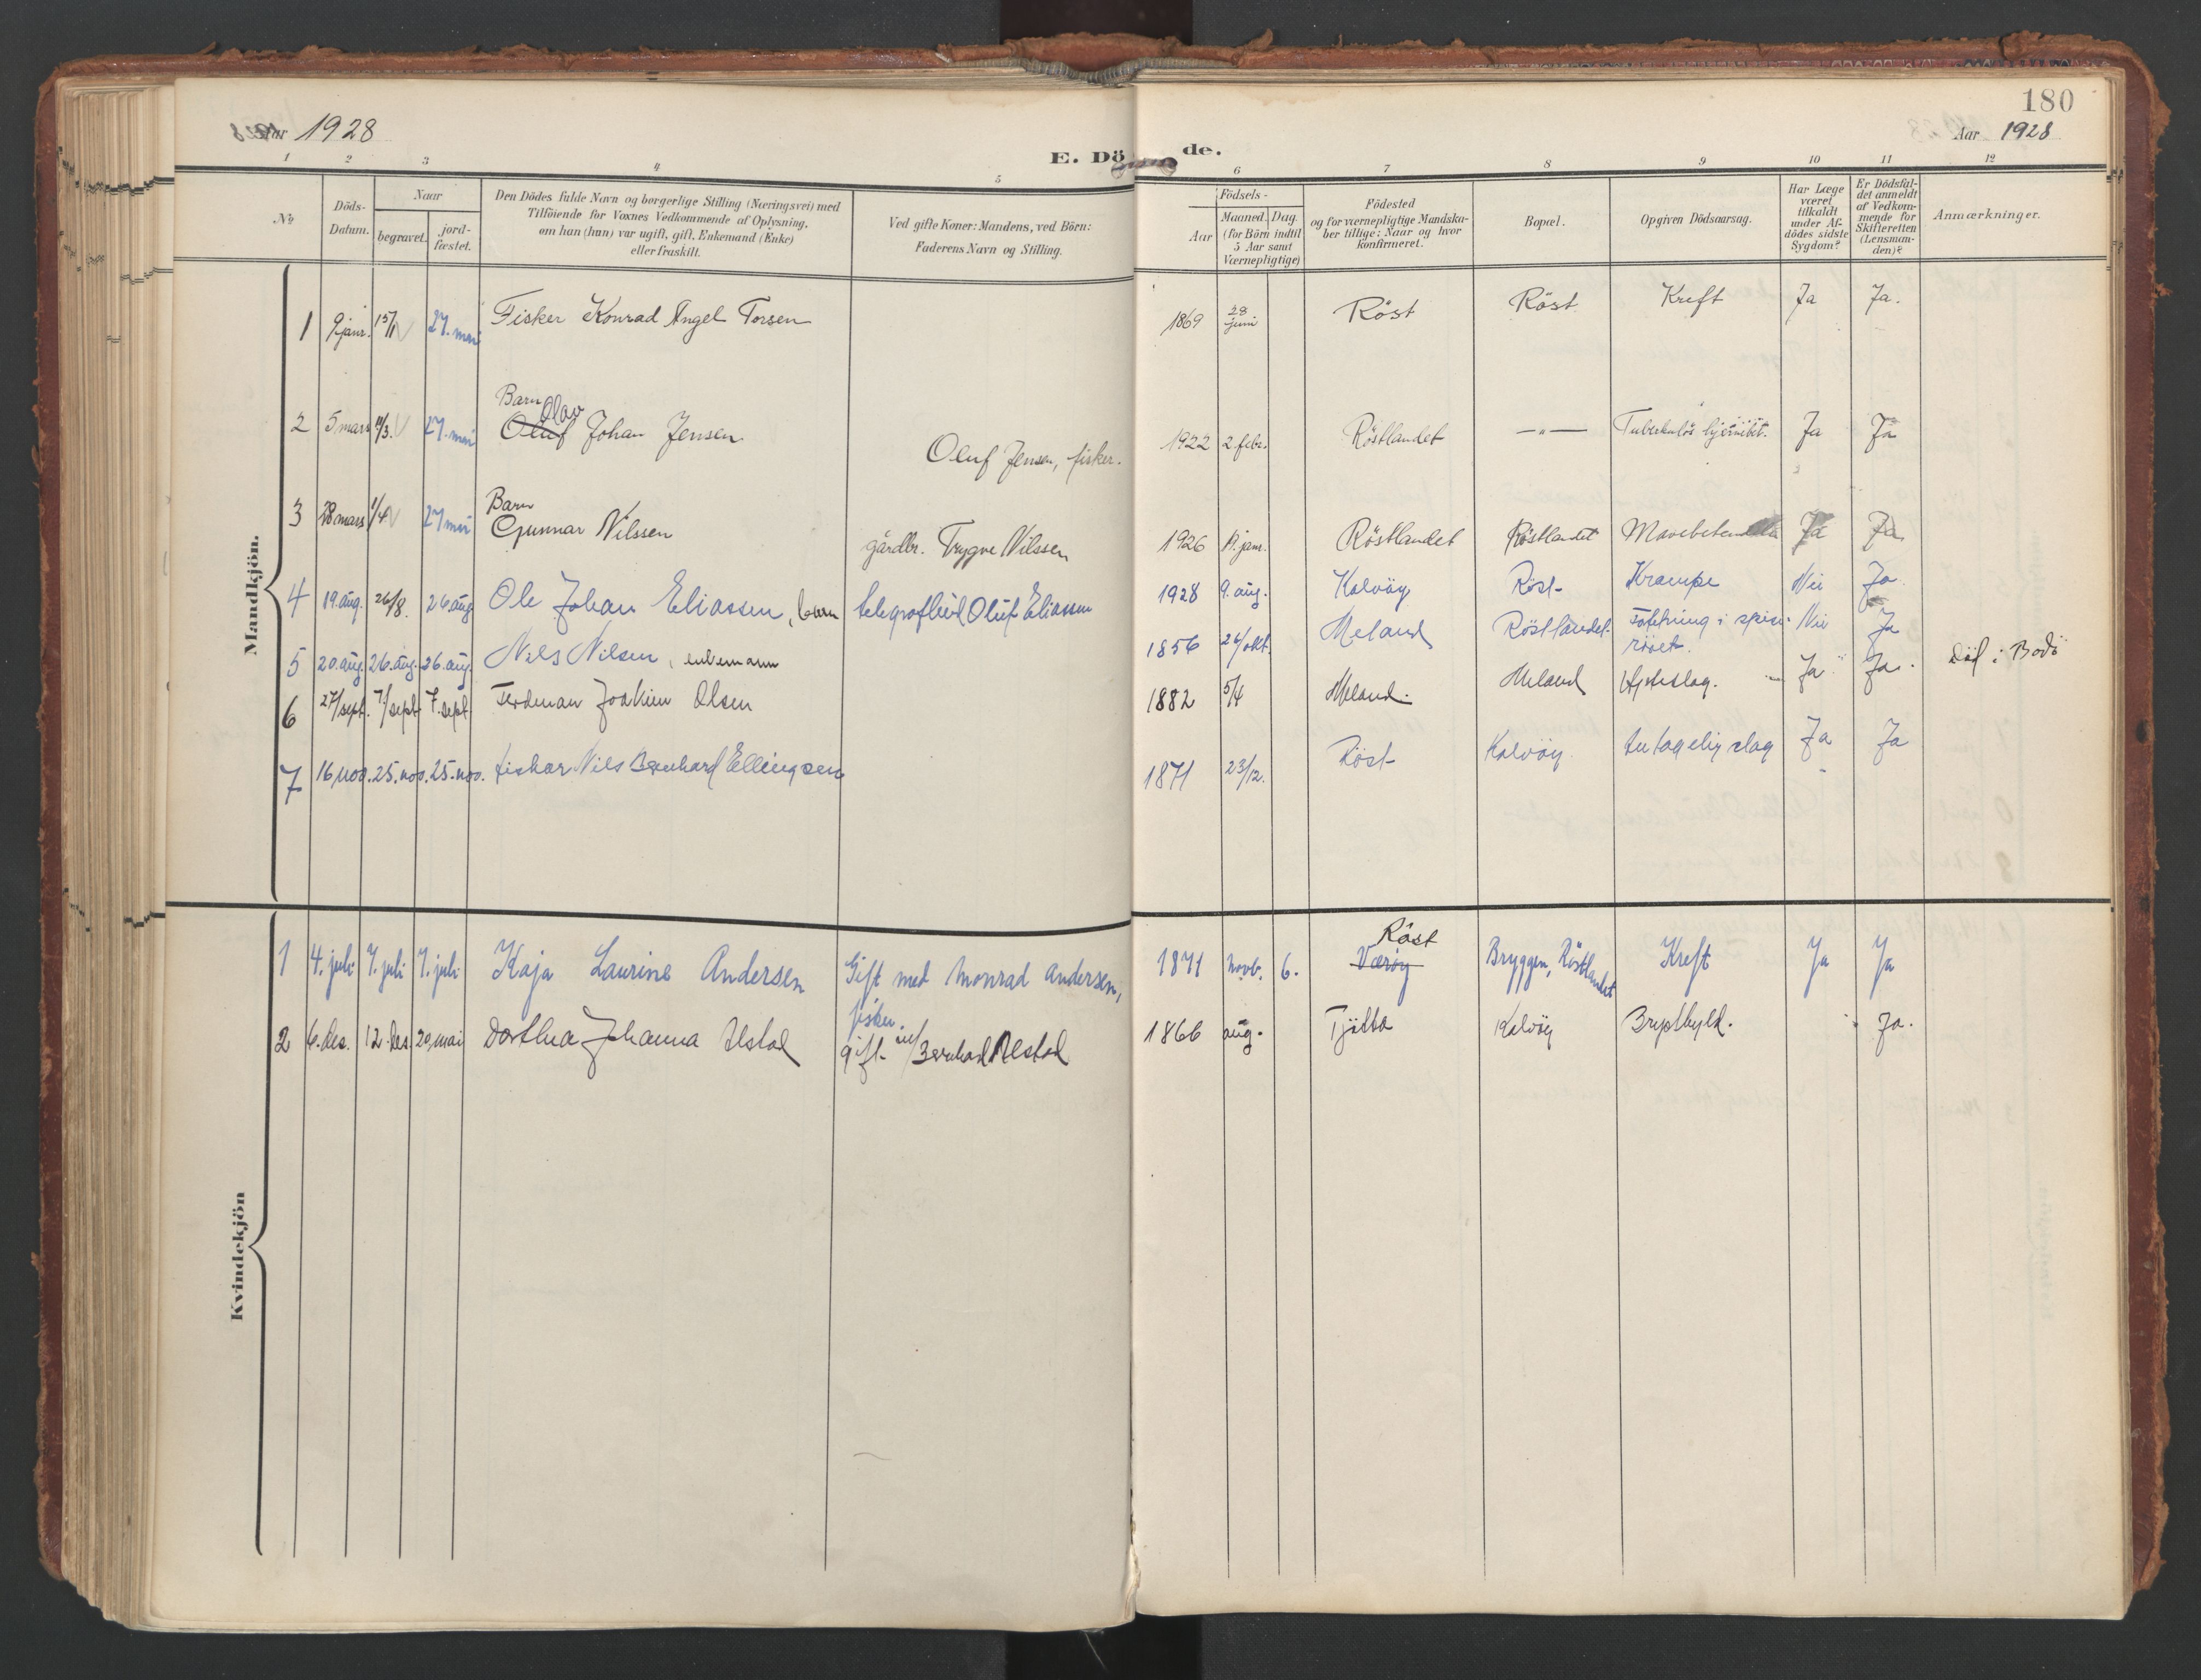 180
Aar 1928
Aar 1928
E. Döde.
1 2 3 4 5 6 7 8 9 10 11 12
No
Döds-Datum.
Naar
begravet.
jord-fæstet.
Den Dödes fulde Navn og borgerlige Stilling (Næringsvei) med
Tilföiende for Voxnes Vedkommende af Oplysning,
om han (hun) var ugift, gift, Enkemand (Enke)
eller fraskilt.
Ved gifte Koner: Mandens, ved Börn:
Faderens Navn og Stilling.
Födsels-
Aar
Maaned. Dag.
(for Börn indtil
5 Aar samt
Værnepligtige)
Födested
og for værnepligtige Mandska-
ber tillige: Naar og hvor
konfirmeret.
Bopæl.
Opgiven Dödsaarsag.
Har Læge
været
tilkaldt
under Af-
dödes sidste
Sygdom?
Er Dödsfal-
det anmeldt
af Vedkom-
mende for
Skifteretten
(Lensman-
den)?
Anmærkninger.
Mandkjön.
1 9 janr. 15/1 27. mai Fisker Konrad Angel Torsen 1869 28 juni Röst Röst Kreft Ja Ja.
Barn Olav
2 5 mars 11/3. 27. mai Oluf Johan Jensen Oluf Jensen, fisker. 1922 2. febr. Röstlandet —"— Tuberkulös hjernebet. Ja Ja
Barn
3 28 mars 1/4 27 mai Gunnar Nilssen gårdbr. Trygve Nilssen 1926 janr. Röstlandet Röstlandet Ja Ja
4 19. aug. 26/8. 26 aug Ole Johan Eliassen, barn Oluf Eliassen 1928 9. aug. Kalvöy Röst Krampe Nei Ja.
5 20. aug. 26. aug. 26. aug. Nils Nilsen, enkemann 1856 24/okt. Meland Röstlandet. i spise-röret. Nei Ja
6 27/sept. 7/sept 7. sept Ferdinan Joakim Olsen 1882 5/4 Meland. Meland Hjerteslag. Ja Ja. död i Bodö
7 16 nov. 25. nov. 25. nov. fisker Nils Bernhard Ellingsen 1871 23/12. Röst Kalvöy. slag Ja Ja
Kvindekjön
1 4. juli 7. juli 7. juli Kaja Laurine Andersen Gift med Monrad Andersen, fisker. 1871 Novb. 6. Værøy Röst Bryggen, Röstlandet Kreft Ja Ja
2 6. des. 12. des. 20. mai Dorthea Johanna Ulstad gift m/ Bernhard Ulstad 1866 aug. Tjötta Kalvöy Brystbyld. Ja.